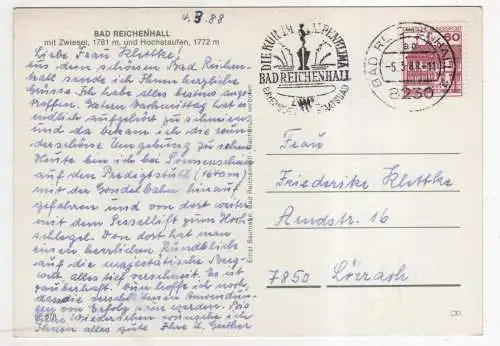 4.3.88
BAD REICHENHALL
mit Zwiesel, 1781 m. und Hochstaufen, 1772 m
Liebe Frau Klettke!
Aus dem schönen Bad Reichen-
hall sende ich Ihnen herzliche
Grüsse. Ich habe alles bestens ange-
troffen. Gestern Nachmittag hat es
endlich aufgehört zu schneien
und da bewog ich die wun-
derschöne Umgebung zu sehen
Heute bin ich bei Sonnenschein
auf den Predigtstuhl (1640m)
mit der Gondelbahn hinauf
gefahren und von dort weiter
mit dem Sessellift zum Hoch
schlegel. Von dort hat man
einen herrlichen Rundblick
auf die majestätische Berg-
welt alles tief verschneit. Es ist
zauberhaft! Nun hoffe ich noch,
dass die Anwendun-
gen von Erfolg sein werden. Bis
Wiedersehen wünsche ich
Ihnen alles gute Ihre
DIE KUR IM ALPENKLIMA
BAD REICHENHALL
BAYERISCHES STAATSBAD
BAD REICHENHALL
-5.3.88-11
8230
60
Frau
Friederike Klettke
Arndstr. 16
7850 Lörrach